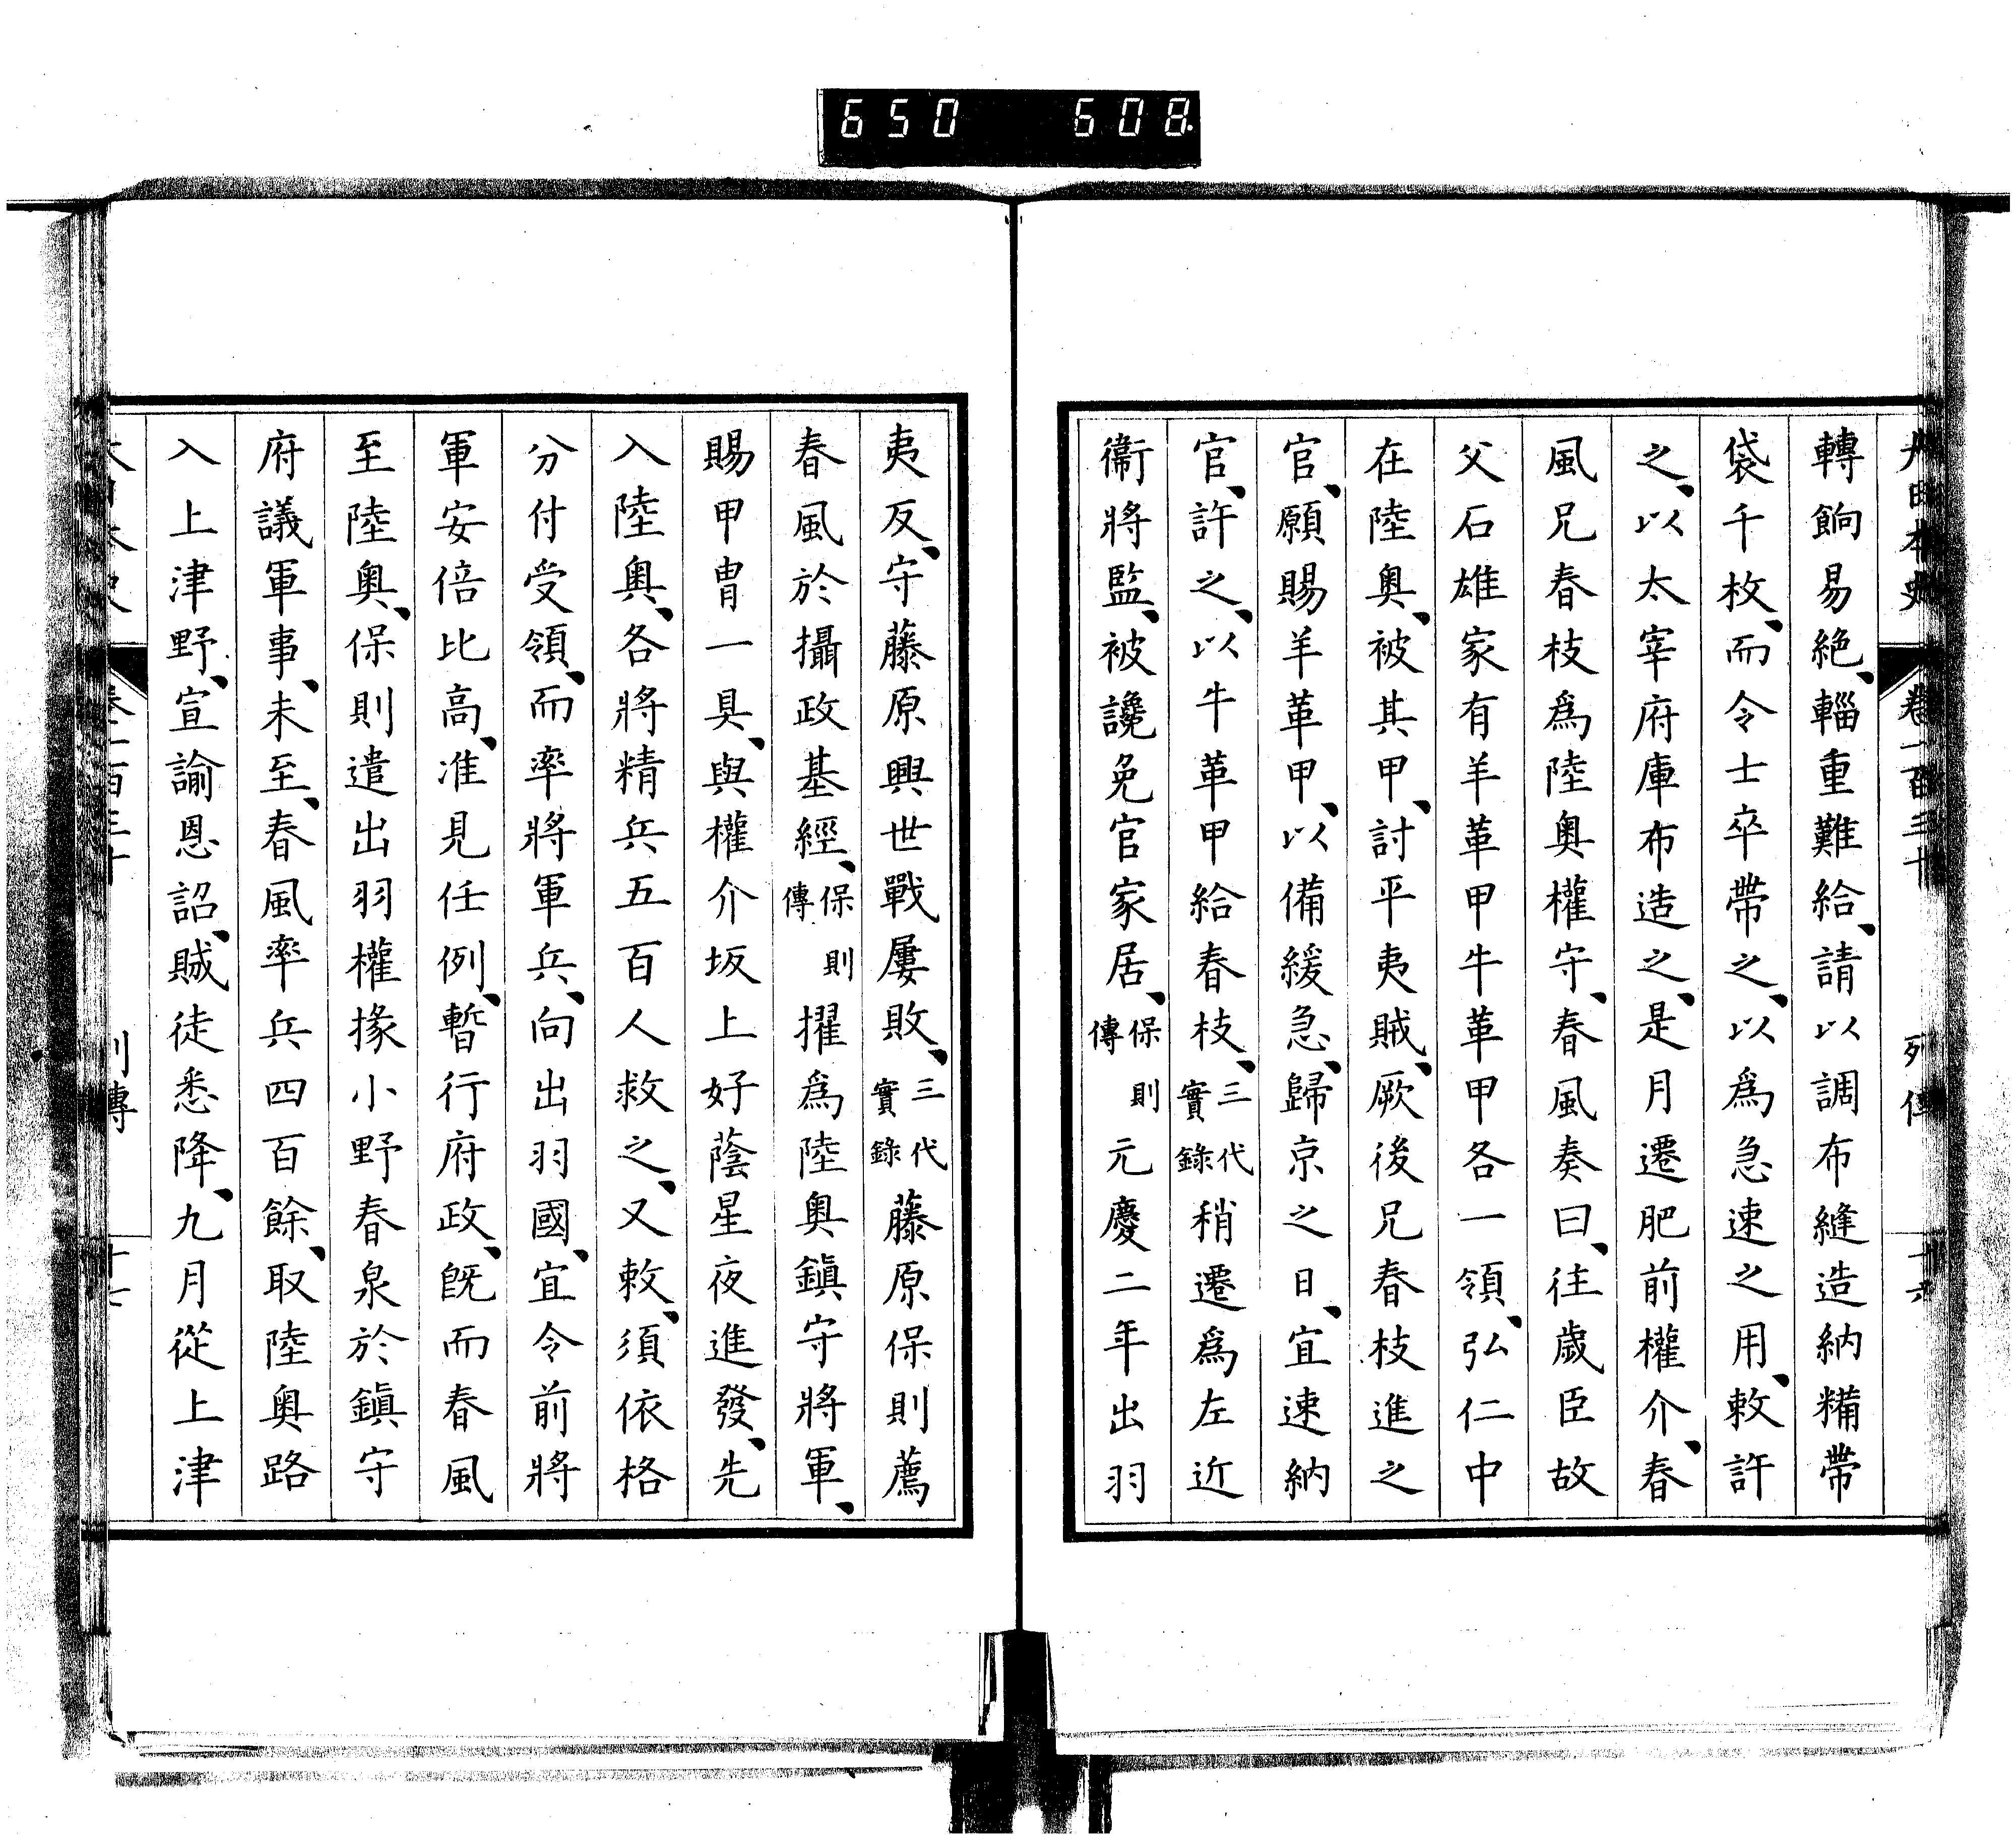 650 608.
大日本史 卷一百三十 列傳 十六
轉餉易絶、輜重難給、請以調布縫造納糒帶
袋千枚、而令士卒帶之、以爲急速之用、敕許
之、以太宰府庫布造之、是月遷肥前權介、春
風兄春枝爲陸奧權守、春風奏曰、往歲臣故
父石雄家有羊革甲牛革甲各一領、弘仁中
在陸奧、被其甲、討平夷賊、厥後兄春枝進之
官、願賜羊革甲、以備緩急、歸京之日、宜速納
官、許之、以牛革甲給春枝、三代實錄稍遷爲左近
衞將監、被讒免官家居、保則傳元慶二年出羽
夷反、守藤原興世戰屢敗、三代實錄藤原保則薦
春風於攝政基經、保則傳擢爲陸奧鎭守將軍、
賜甲冑一具、與權介坂上好蔭星夜進發、先
入陸奧、各將精兵五百人救之、又敕、須依格
分付受領、而率將軍兵、向出羽國、宜令前將
軍安倍比高、准見任例、暫行府政、旣而春風
至陸奧、保則遣出羽權掾小野春泉於鎭守
府議軍事、未至、春風率兵四百餘、取陸奧路
入上津野、宣諭恩詔、賊徒悉降、九月從上津
大日本史 卷一百三十 列傳 十七